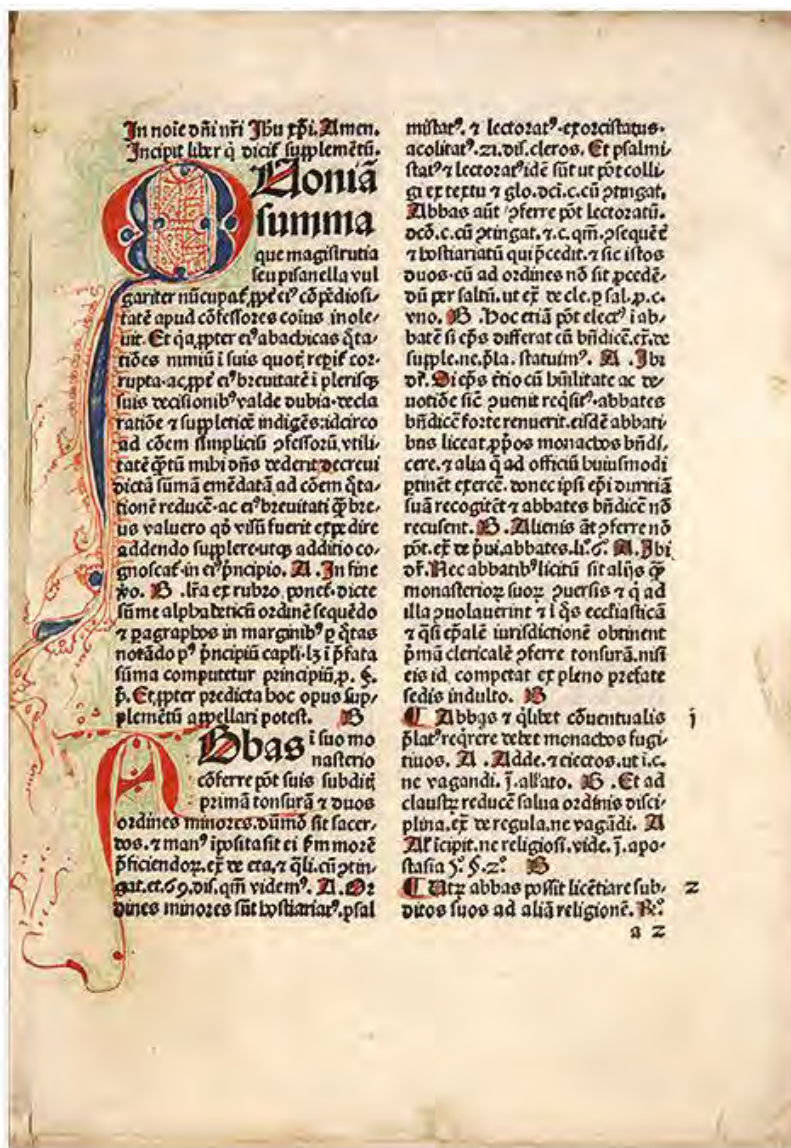 In noīe dñi nr̄i Jhū xp̄i. Amen.
Incipit liber q̄ diciť supplemētū.
QUoniā
summa
que magistrutia
seu pisanella vul
gariter nūcupať, ꝓpť eiꝰ cōpēdiosi⸗
tatē apud cōfessores coīus inole⸗
uit. Et qꝛ, ꝓpter eiꝰ abachicas q̄ta⸗
tiōes nimiū ī suis quoť repiť cor⸗
rupta. ac, ꝓpť eiꝰ breuitatē ī plerisqꝫ
suis decisionibꝰ valde dubia. decla
ratiōe ⁊ suppletiōe indigēs: idcirco
ad cōem simpliciū ꝯfessorū, vtili⸗
tatē q̄tū mihi dn̄s dederit decreui
dictā sūmā emēdatā, ad cōem q̄ta⸗
tionē reducē. ac eiꝰ breuitati q̄ bre⸗
us valuero qd̄ visū fuerit expedire
addendo supplere. utqꝫ additio co⸗
gnoscať. in eiꝰ p̄ncipio. A. In fine
ꝟo. B. lr̄a ex rubro ponēť. dicte
sūme alphabeticū ordinē sequēdo
⁊ ꝑagraphos in marginibꝰ ꝑ q̄tas
notādo pꝰ p̄ncipiū capl̄i. lꝫ ī p̄fata
sūma computetur principiū, ꝑ. §.
p̄. Et, ꝓpter predicta hoc opus sup⸗
plemētū appellari potest. B
ABbas ī suo mo
nasterio
cōferre pōt suis subditꝭ
primā tonsurā ⁊ duos
ordines minores. dūmō sit sacer⸗
dos. ⁊ manꝰ īpositasit ei p̄m morē
p̄ficiendoꝝ. ex̄ de eta. ⁊ q̄li. cū ꝯtin⸗
gat. et. 69. dis. qm̄ videmꝰ. A. Or
dines minores sūt hostiariatꝰ. psal
mistatꝰ. ⁊ lectoratꝰ. exorcistatus.
acolitatꝰ. 21. dis. cleros. Et psalmi⸗
statꝰ ⁊ lectoratꝰ idē sūt ut pōt colli⸗
gi ex textu ⁊ glo. dc̄i. c. cū ꝯtingat.
Abbas aūt ꝯferre pōt lectoratū.
dcō. c. cū ꝯtingat. ⁊. c. qm̄. ꝓsequēť
⁊ hostiariatū qui p̄cedit. ⁊ sic istos
duos. cū ad ordines nō sit ꝓcedē⸗
dū per saltū. ut ex̄. de cle. ꝑ sal. ꝓ. c.
vno. B. Hoc etiā pōt electꝰ ī ab⸗
batē si ep̄s differat eū bn̄dicē. ex̄. de
supple. ne. p̄la. statuimꝰ. A. Ibi
dr̄. Si ep̄s ētio cū hūilitate ac de⸗
uotiōe sic̄ ꝯuenit reqsitꝰ. abbates
bn̄dicē forte renuerit. eisdē abbati
bus liceat, ꝓp̄os monachos bn̄di⸗
cere. ⁊ alia q̄ ad officiū huiusmodi
ꝑtinēt exercē. donec ipsi ep̄i duritiā
suā recogitēt ⁊ abbates bn̄dicē nō
recusent. B. Alienis āt ꝯferre nō
pōt. ex̄ de p̄ui. abbates. li. 6ꝰ. A. Ibi
dr̄. Nec abbatibꝰ licitū sit alijs q̄
monasterioꝝ suoꝝ ꝯuersis ⁊ q̄ ad
illa ꝯuolauerint ⁊ ī q̄s eccl̄iasticā
⁊ q̄si ep̄alē iurisdictionē obtinent
p̄mā clericalē ꝯferre tonsurā. nisi
eis id competat ex pleno prefate
sedis indulto. B
¶ Abbas ⁊ q̄libet cōuentualis j
p̄latꝰ reqrere debet monachos fugi⸗
tiuos. A. Adde. ⁊ eiectos. ut ī. c.
ne vagandi. j. allato. B. Et ad
claustꝝ reducē salua ordinis disci⸗
plina. ex̄ de regula. ne vagādi. A
Ar̄ īcipit. ne religiosi. vide. j. apo⸗
stasia 5ꝰ. §. 2ꝰ. B
¶ Utꝝ abbas possit licētiare sub⸗ 2
ditos suos ad aliā religionē. Rꝰ.
a 2